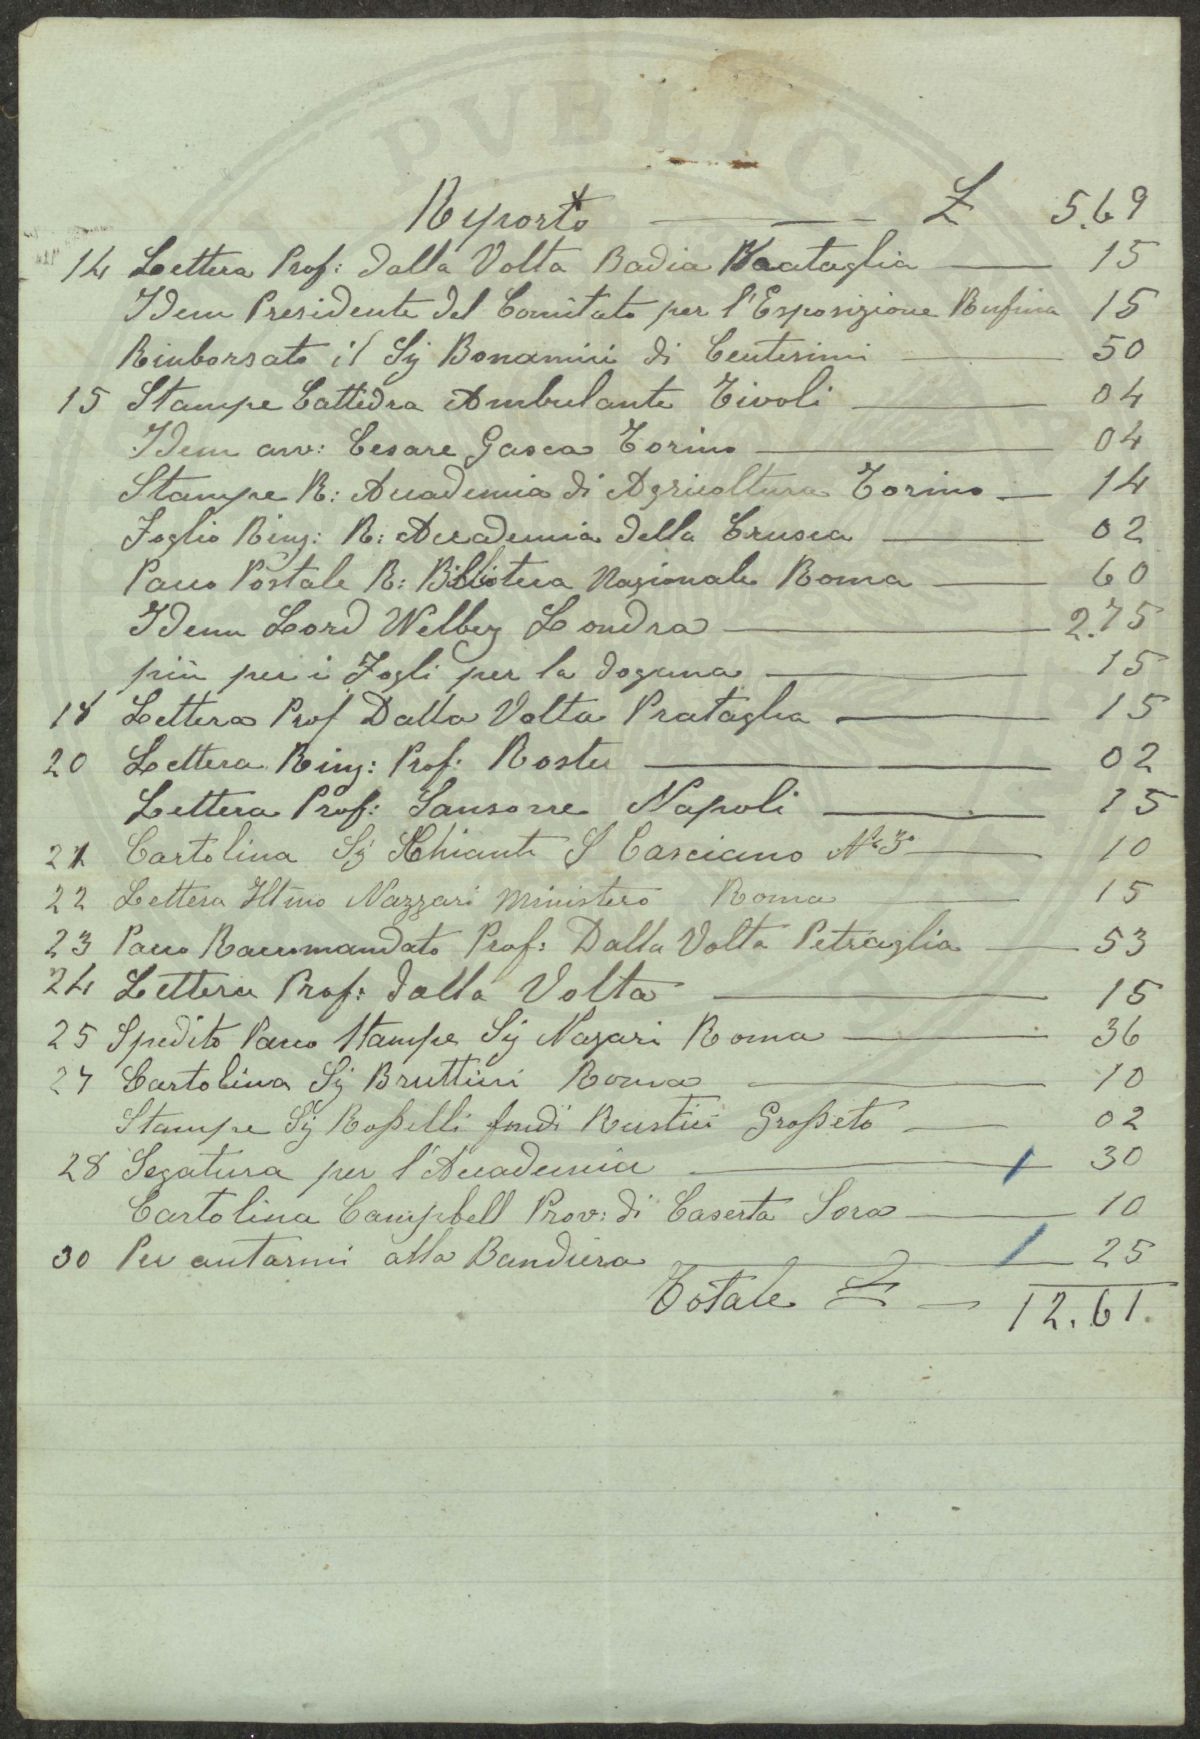 PVBLIC
Riporto £ 5.69
14 Lettera Prof: Dalla Volta Badia Prataglia 15
Idem Presidente del Comitato per l'Esposizione Rufina 15
Rimborsato il Sig Bonamici di Centesimi 50
15 Stampe Cattedra Ambulante Tivoli 04
Idem avv: Cesare Gasca Torino 04
Stampe R: Accademia di Agricoltura Torino 14
Foglio Ring: R: Accademia della Crusca 02
Pacco Postale R: Biblioteca Nazionale Roma 60
Idem Lord Welbey Londra 2.75
più per i Fogli per la dogana 15
18 Lettera Prof Dalla Volta Prataglia 15
20 Lettera Ring: Prof: Roster 02
Lettera Prof: Sansone Napoli 15
21 Cartolina Sig Chianti S Casciano N.3 10
22 Lettera Illmo Nazzari Ministero Roma 15
23 Pacco Raccomandato Prof: Dalla Volta Petraglia 53
24 Lettera Prof: Dalla Volta 15
25 Spedito Pacco Stampe Sig Nazari Roma 36
27 Cartolina Sig Bruttini Roma 10
Stampe Sig Roßelli fondi Rustici Großeto 02
28 Segatura per l'Accademia 30
Cartolina Campbell Prov: di Caserta Sora 10
30 Per alla Bandiera 25
Totale £ 12.61.